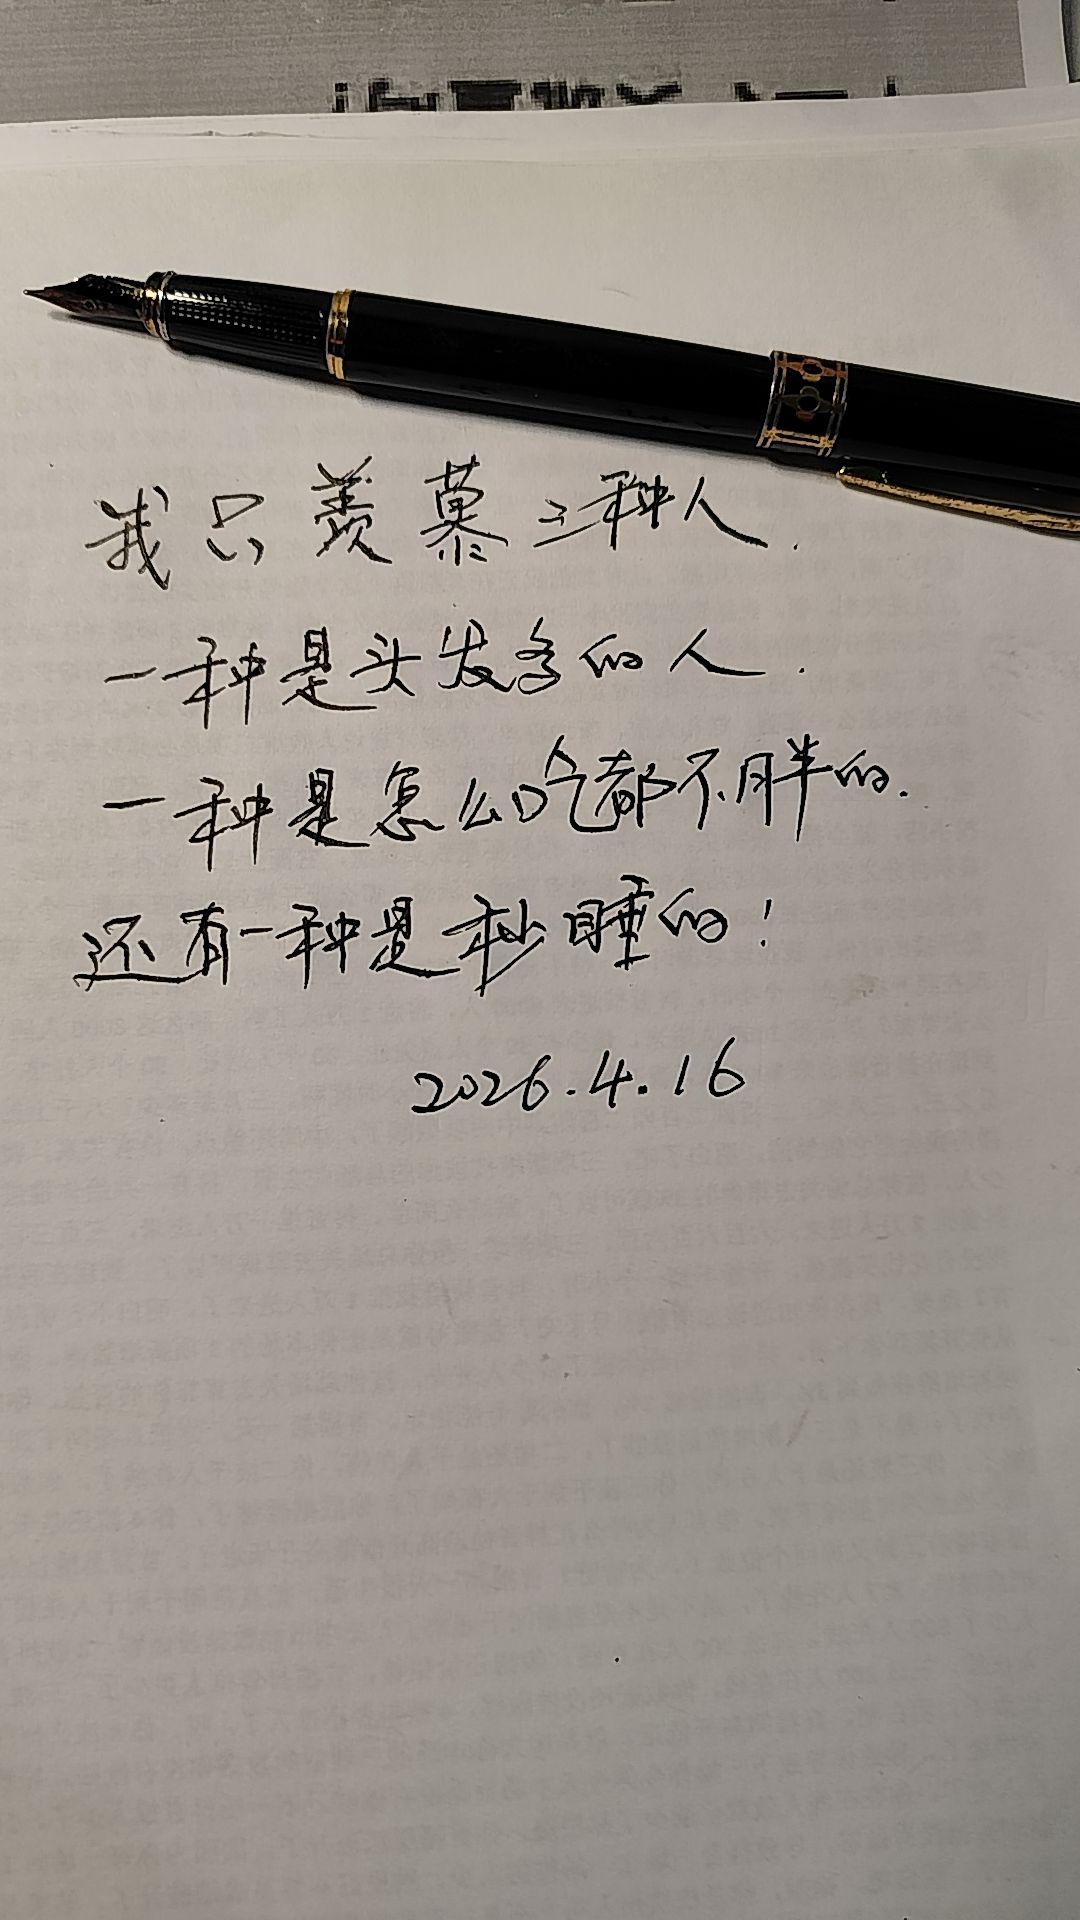 我只羡慕三种人.
一种是头发多的人.
一种是怎么吃都不胖的.
还有一种是秒睡的!
2026.4.16